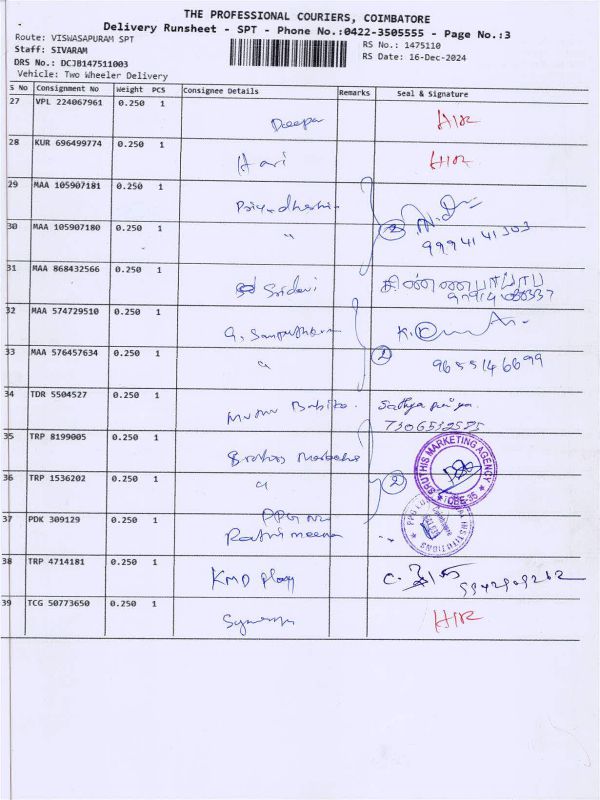 THE PROFESSIONAL COURIERS, COIMBATORE
Delivery Runsheet - SPT - Phone No.:0422-3505555 - Page No.:3
Route: VISWASAPURAM SPT
Staff: SIVARAM
DRS No.: DCJB147511003
Vehicle: Two Wheeler Delivery
RS No.: 1475110
RS Date: 16-Dec-2024
S No Consignment No Weight PCS Consignee Details Remarks Seal & Signature
27 VPL 224067961 0.250 1 Deepa HIR
28 KUR 696499774 0.250 1 Hari HIR
29 MAA 105907181 0.250 1
30 MAA 105907180 0.250 1 " 2 9994141303
31 MAA 868432566 0.250 1 Sridevi
32 MAA 574729510 0.250 1
33 MAA 576457634 0.250 1 " 2 9655146699
34 TDR 5504527 0.250 1 Sathya priya
7306532585
35 TRP 8199005 0.250 1 SRUTHIS MARKETING AGENCY CBE-35
36 TRP 1536202 0.250 1 " 2
37 PDK 309129 0.250 1 Rathi meena
38 TRP 4714181 0.250 1 KMD
39 TCG 50773650 0.250 1 HIR